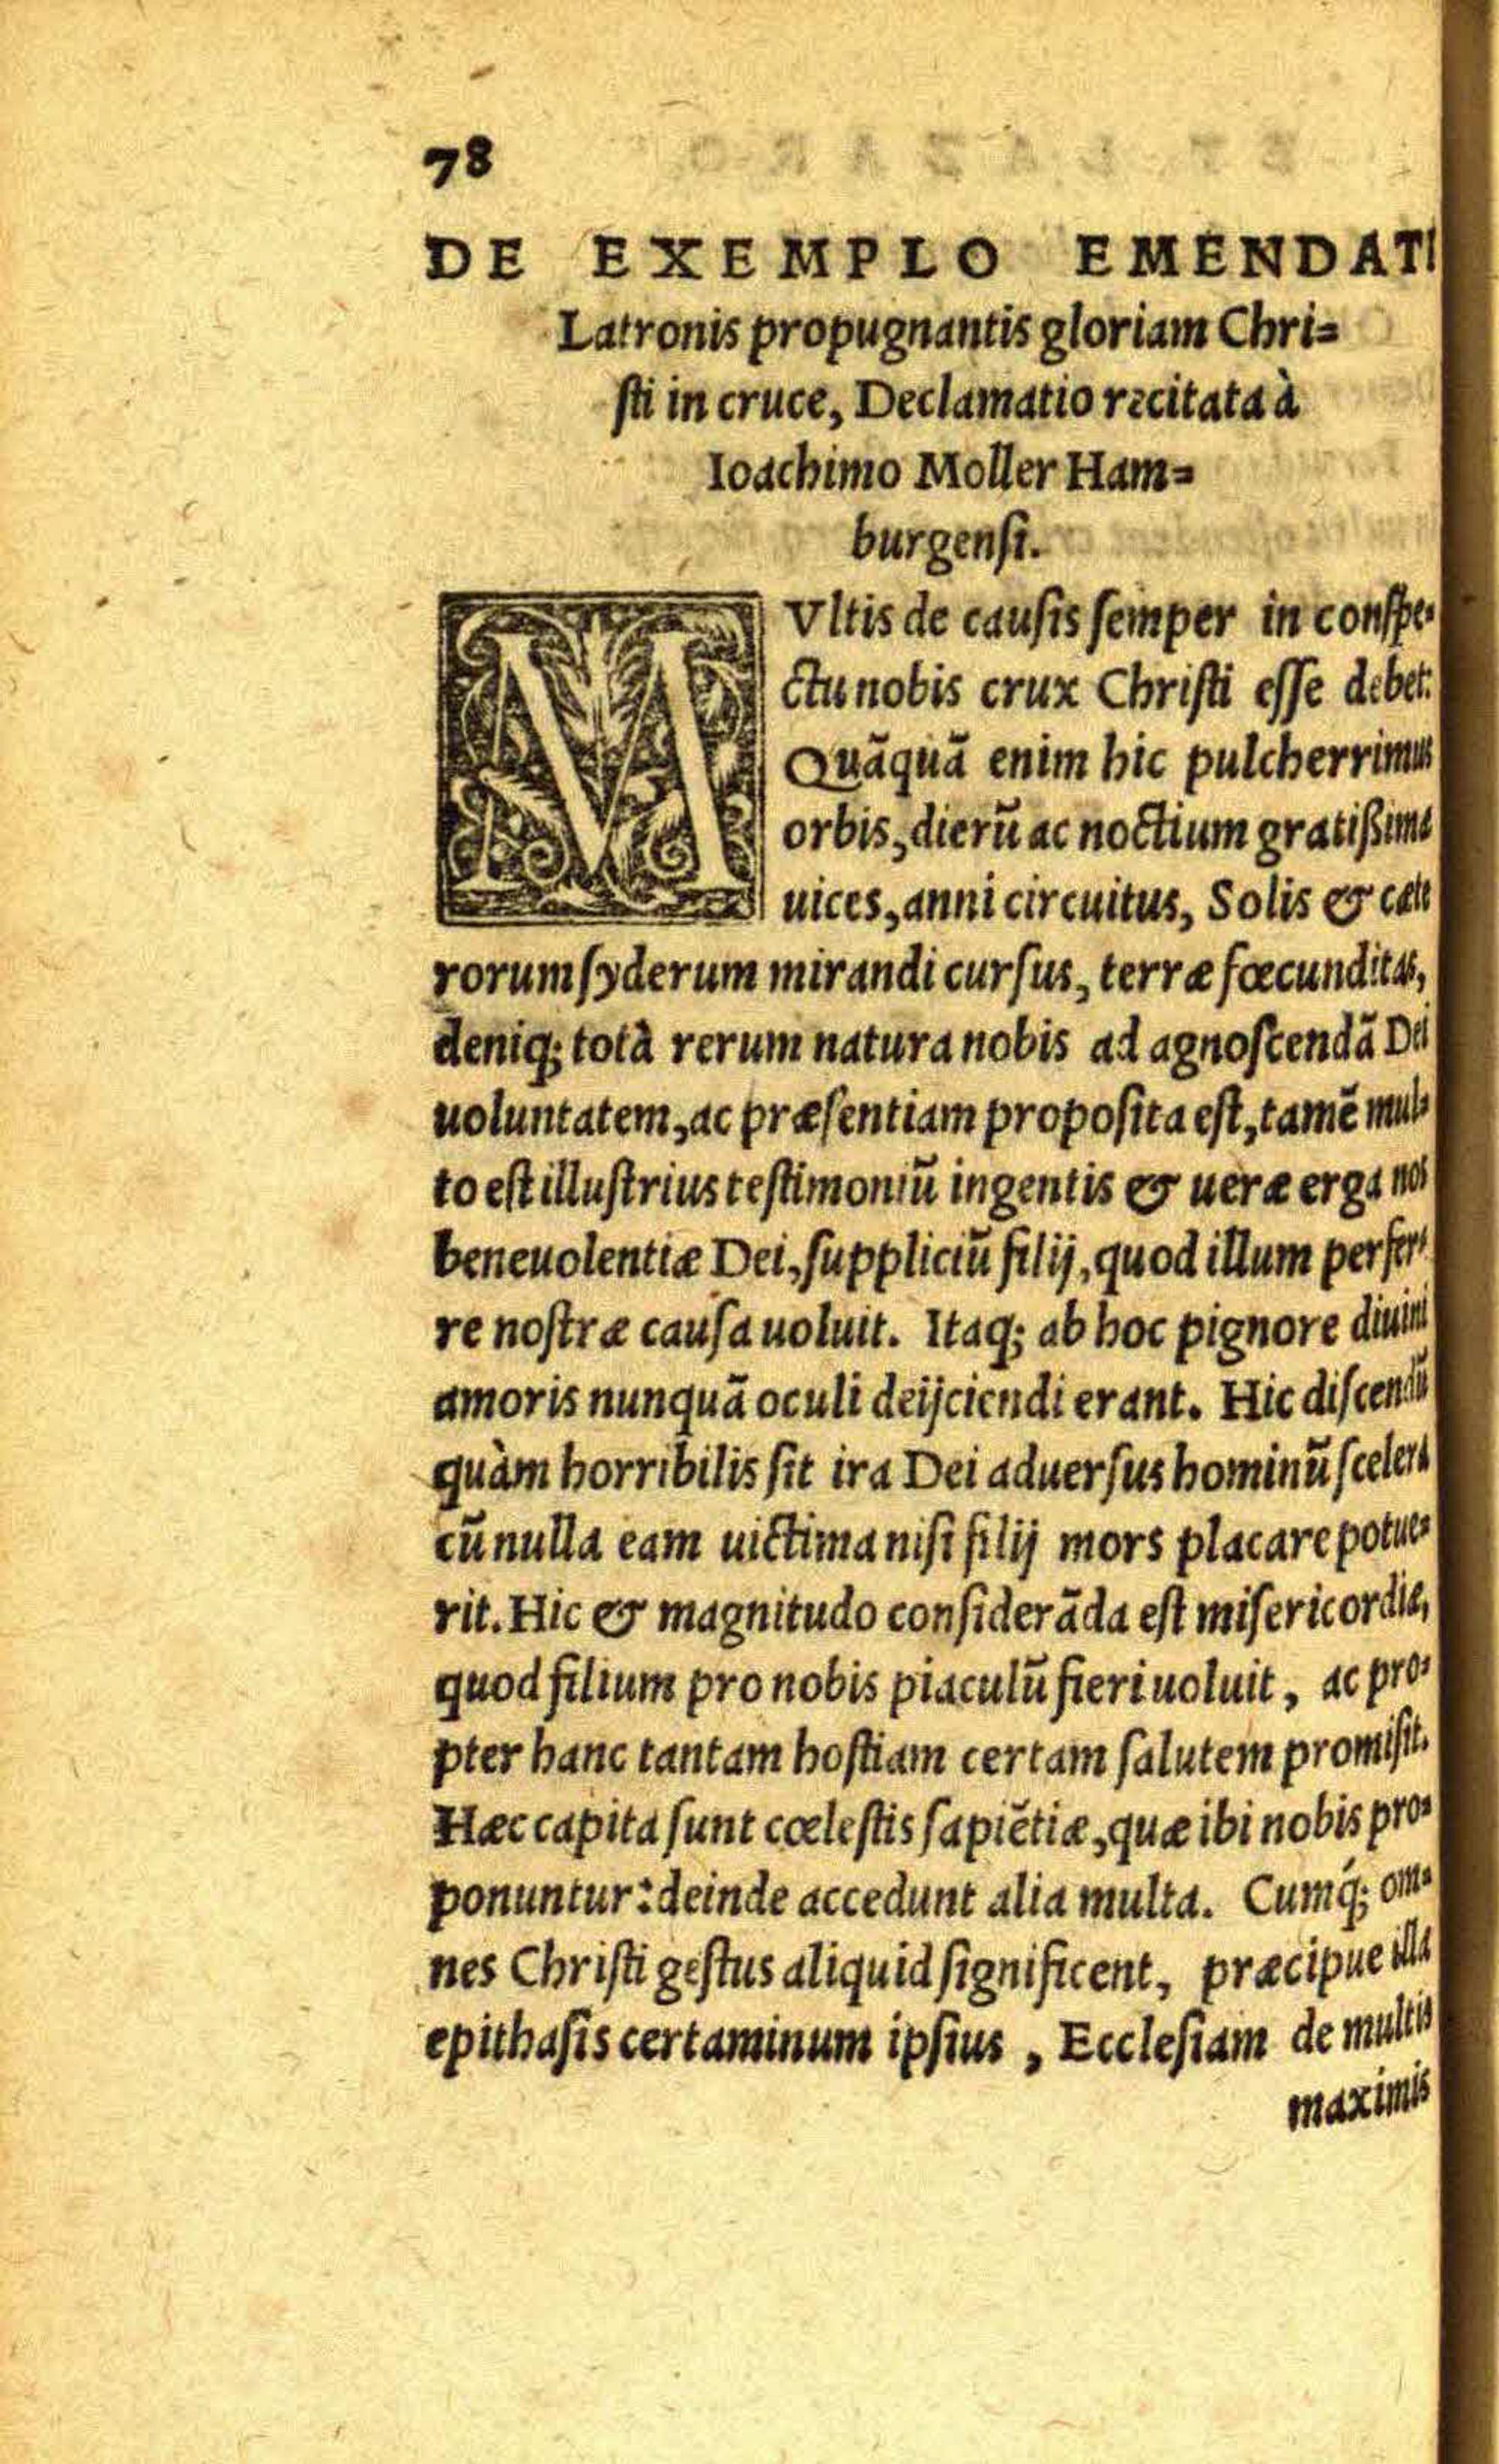 78
DE EXEMPLO EMENDATI
Latronis propugnantis gloriam Chri=
sti in cruce, Declamatio recitata à
Ioachimo Moller Ham=
burgensi.
MVltis de causis semper in conspe=
ctu nobis crux Christi esse debet:
Quāquā enim hic pulcherrimus
orbis, dierū ac noctium gratißima
uices, anni circuitus, Solis & cæte
rorum syderum mirandi cursus, terræ fœcunditas,
deniq; totà rerum natura nobis ad agnoscendā Dei
uoluntatem, ac præsentiam proposita est, tamē mul=
to est illustrius testimoniū ingentis & ueræ erga nos
beneuolentiæ Dei, suppliciū filij, quod illum perfer=
re nostræ causa uoluit. Itaq; ab hoc pignore diuini
amoris nunquā oculi deijciendi erant. Hic discendū
quàm horribilis sit ira Dei aduersus hominū scelera
cū nulla eam uictima nisi filij mors placare potue=
rit. Hic & magnitudo considerāda est misericordiæ,
quod filium pro nobis piaculū fieri uoluit, ac pro=
pter hanc tantam hostiam certam salutem promisit.
Hæc capita sunt cœlestis sapiētiæ, quæ ibi nobis pro=
ponuntur: deinde accedunt alia multa. Cumq́; om=
nes Christi gestus aliquid significent, præcipue illa
epithasis certaminum ipsius, Ecclesiam de multis
maximis